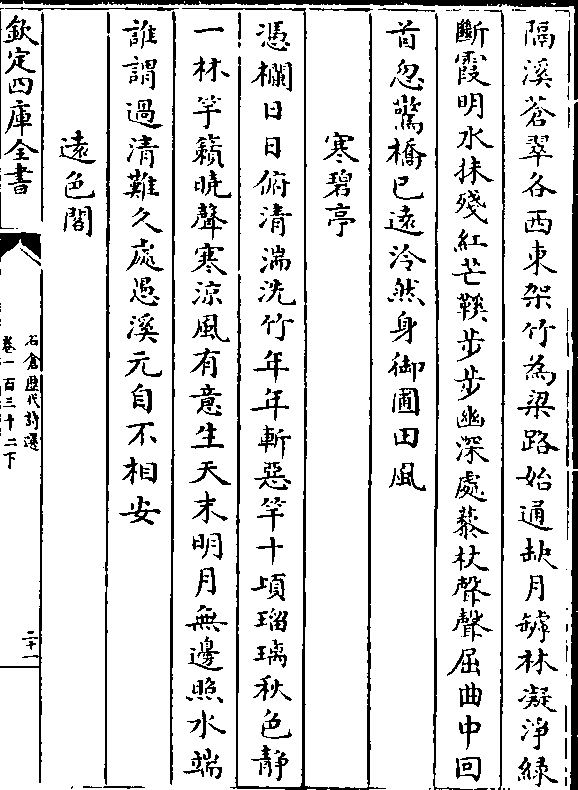 隔溪蒼翠各西東架竹為梁路始通缺月罅林凝淨緑
斷霞明水抹殘紅芒鞵步步幽深處藜杖聲聲屈曲中回
首忽驚橋已遠泠然身御圃田風
寒碧亭
憑欄日日俯清湍洗竹年年斬惡竿十頃瑠璃秋色靜
一林竽籟曉聲寒涼風有意生天末明月無邊照水端
誰謂過清難久處愚溪元自不相安
遠色閣
欽定四庫全書
石倉歴代詩選
卷一百三十二下
二十一